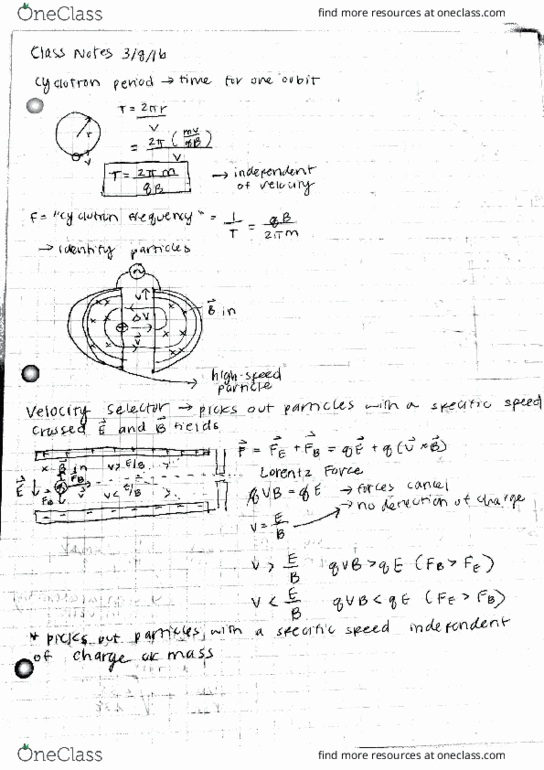 OneClass
find more resources at oneclass.com
Class Notes 3/8/16
Cyclotron period → time for one orbit
T = 2πr / v
= 2π (mv/qB) / v
T = 2πm / qB → independent of velocity
r
v
F = "cyclotron frequency" = 1/T = qB/2πm
→ identify particles
v↑
ΔV
B⃗ in
v⃗
high-speed particle
Velocity Selector → picks out particles with a specific speed
crossed E⃗ and B⃗ fields
F⃗ = F⃗E + F⃗B = qE⃗ + q(v⃗ × B⃗)
Lorentz Force
x B⃗ in v > E/B
E⃗ F⃗B v⃗
FE v < E/B
qvB = qE → forces cancel
→ no deflection of charge
v = E/B
v > E/B qvB > qE (FB > FE)
v < E/B qvB < qE (FE > FB)
* picks out particles with a specific speed independent
of charge or mass
OneClass
find more resources at oneclass.com